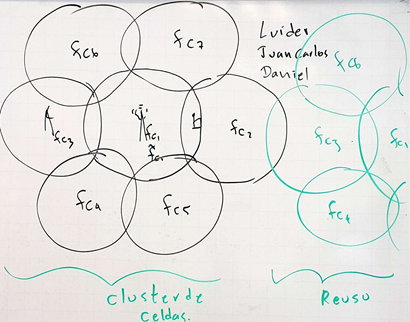 fc6
fc7
Luider
Juan Carlos
Daniel
fc6
A
fc3
fc1
fc1
b
fc2
fc3
fc4
fc5
fc4
Cluster de
Celdas.
Reuso